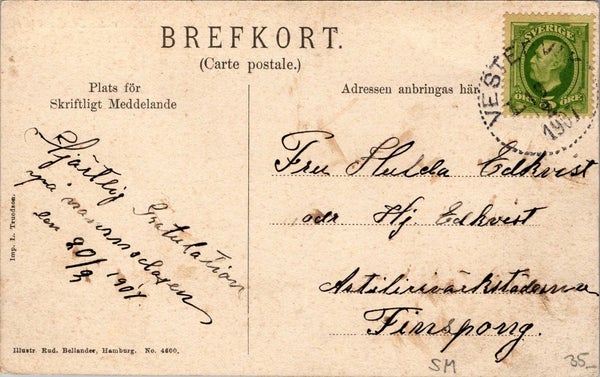 BREFKORT.
(Carte postale.)
Plats för
Skriftligt Meddelande
Adressen anbringas här
SVERIGE
5 ÖRE
VESTERVIK
1907
Hjärtlig Gratulation
på namnsdagen
den 20/9 1907.
Fru Hulda Edkvist
adr Hj. Edkvist
Artilleriverkstäderna
Finspong.
Imp. L. Truedsson.
Illustr. Rud. Bellander, Hamburg. No. 4600.
SM
35.-